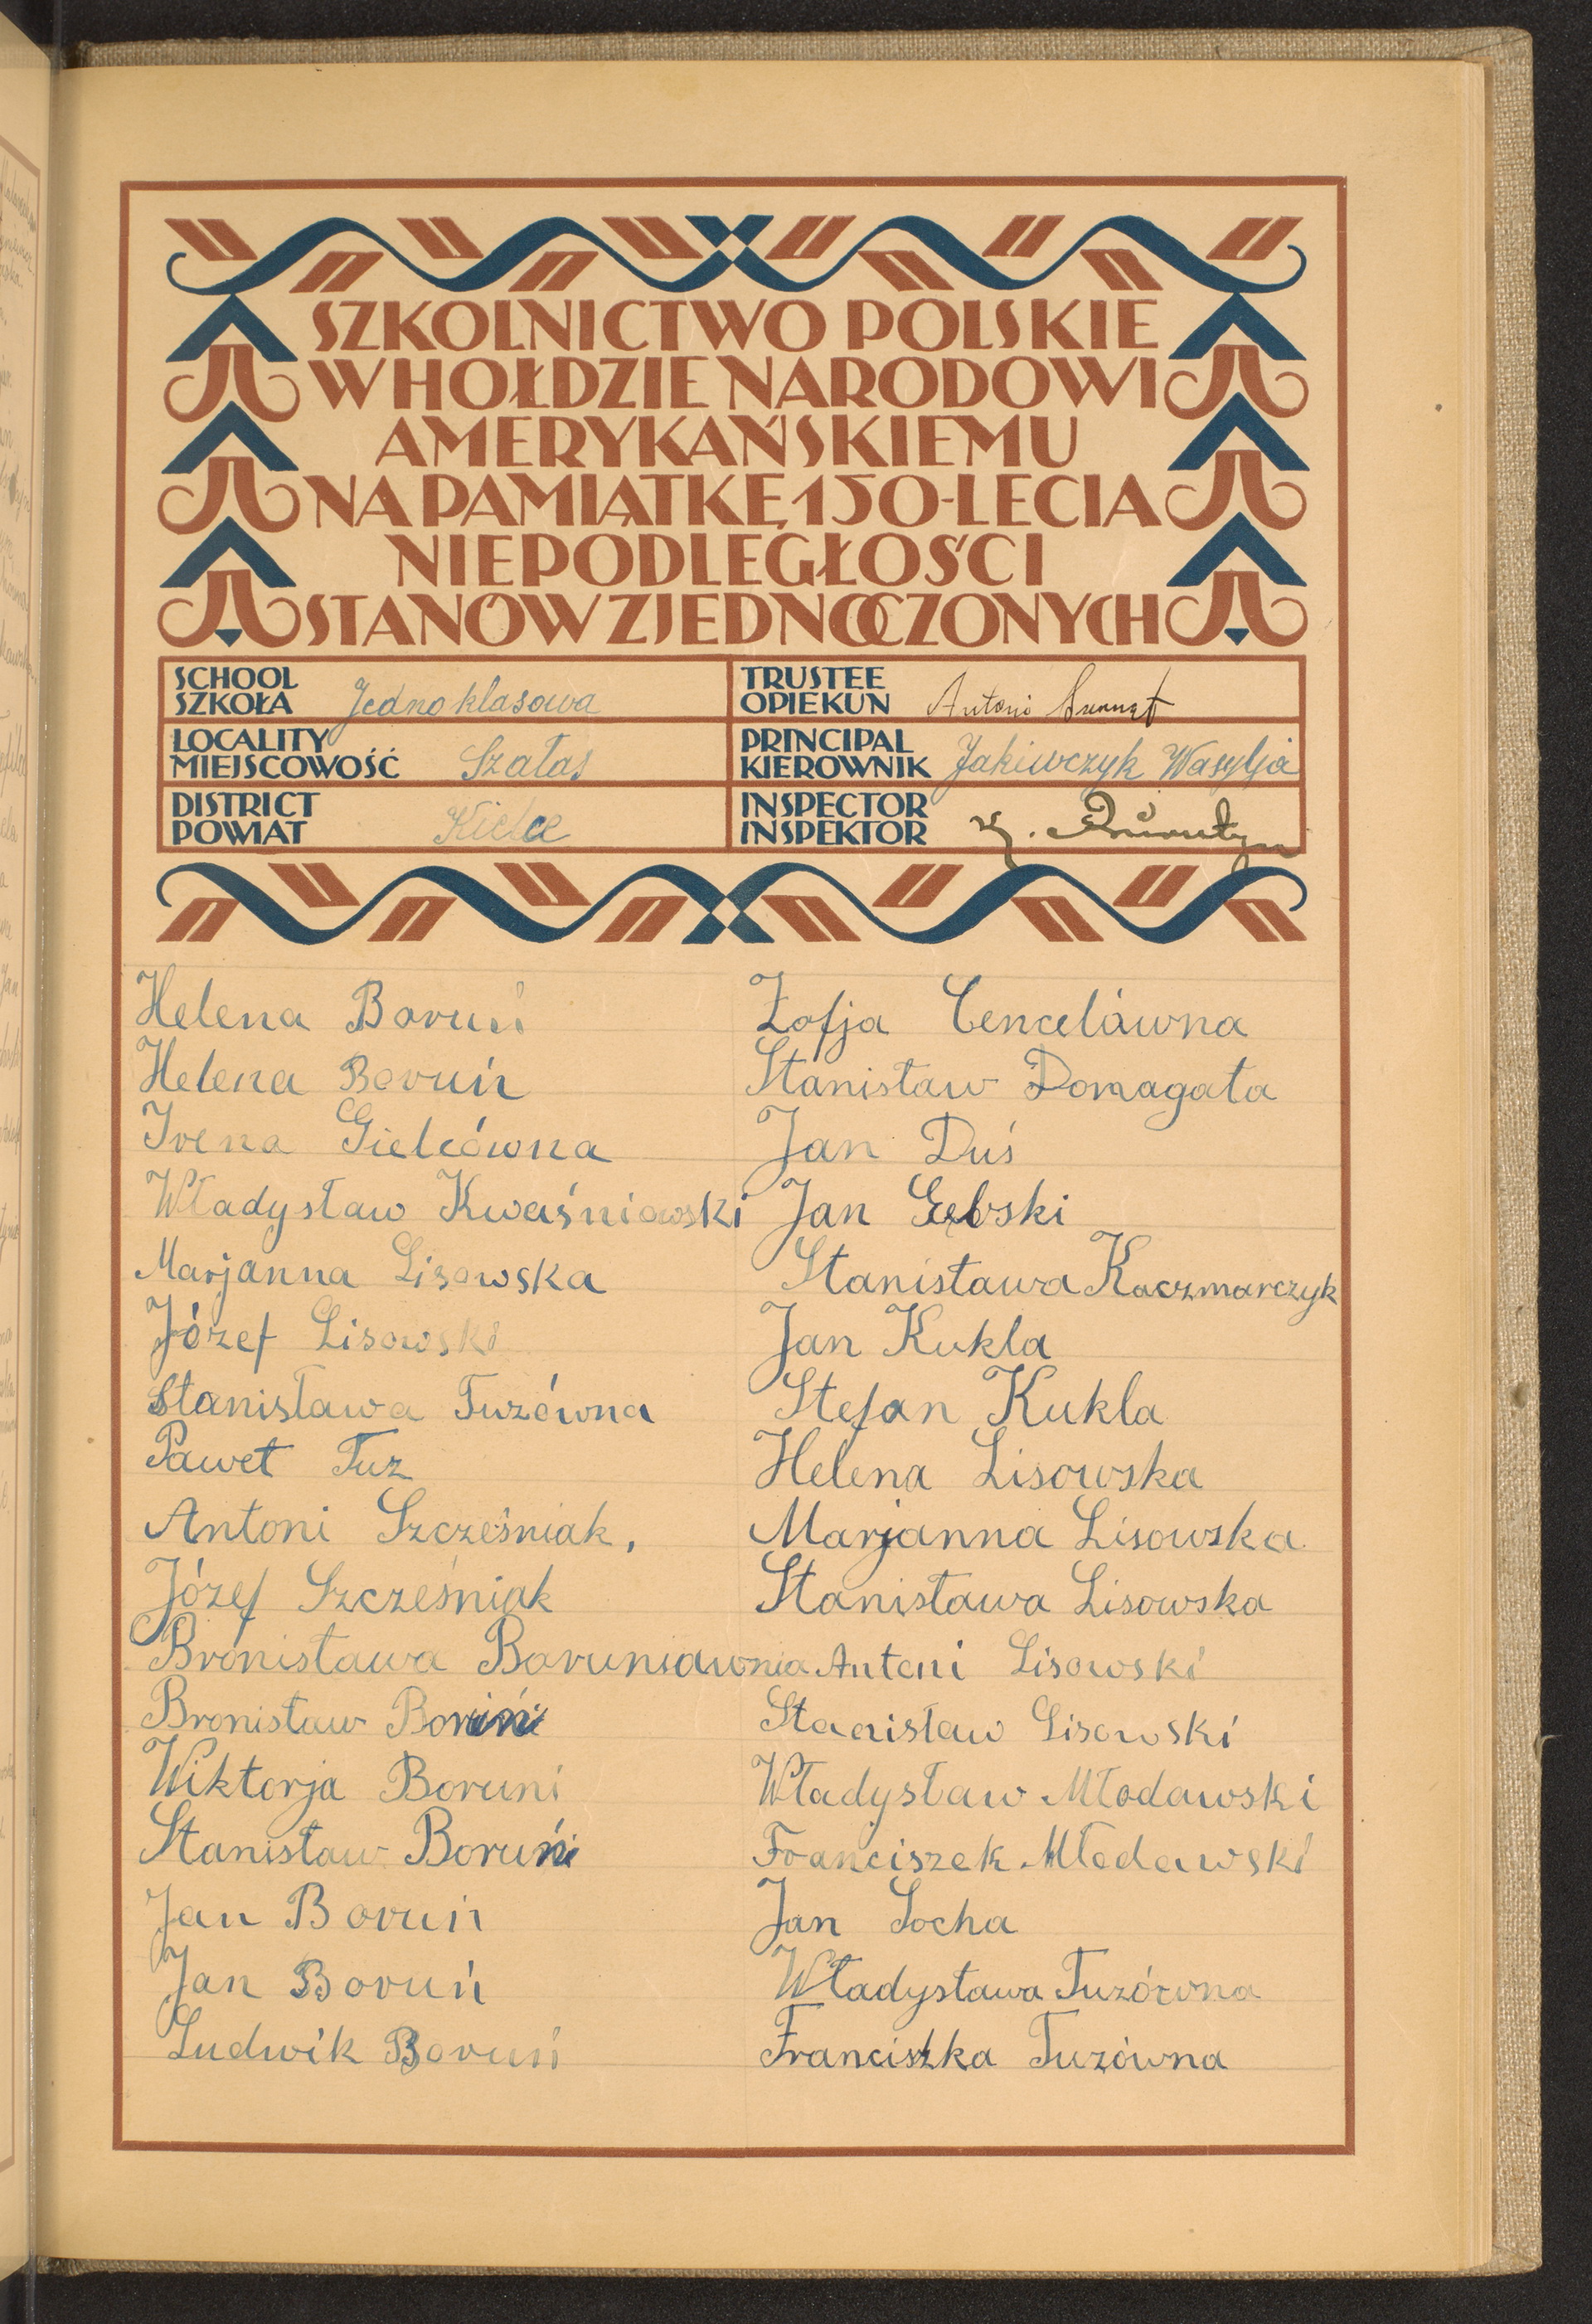 SZKOLNICTWO POLSKIE
W HOŁDZIE NARODOWI
AMERYKAŃSKIEMU
NA PAMIĄTKĘ 150-LECIA
NIEPODLEGŁOŚCI
STANÓW ZJEDNOCZONYCH
SCHOOL
SZKOŁA Jednoklasowa
TRUSTEE
OPIEKUN Antoni
LOCALITY
MIEJSCOWOŚĆ Szałas
PRINCIPAL
KIEROWNIK Jakiwczyk Wasylja
DISTRICT
POWIAT Kielce
INSPECTOR
INSPEKTOR
Helena Boruń
Helena Boruń
Irena Gielcówna
Władysław Kwaśniowski
Marjanna Lisowska
Józef Lisowski
Stanisława Tuzówna
Paweł Tuz
Antoni Szcześniak,
Józef Szcześniak
Bronisława Boruniawnia
Bronisław Boruń
Wiktorja Boruni
Stanisław Boruń
Jan Boruń
Jan Boruń
Ludwik Boruń
Zofja Cencelówna
Stanisław Domagała
Jan Duś
Jan Gębski
Stanisława Kaczmarczyk
Jan Kukla
Stefan Kukla
Helena Lisowska
Marjanna Lisowska
Stanisława Lisowska
Antoni Lisowski
Stanisław Lisowski
Władysław Młodawski
Franciszek Młodawski
Jan Socha
Władysława Tuzówna
Franciszka Tuzówna